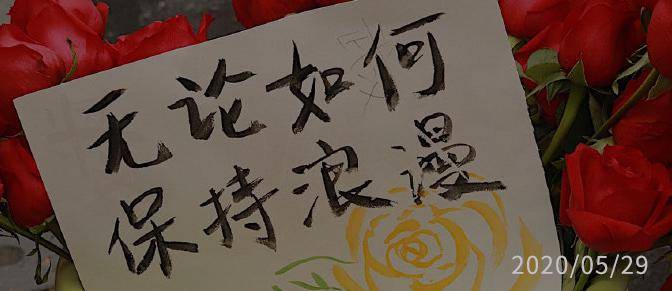 无论如何
保持浪漫
2020/05/29